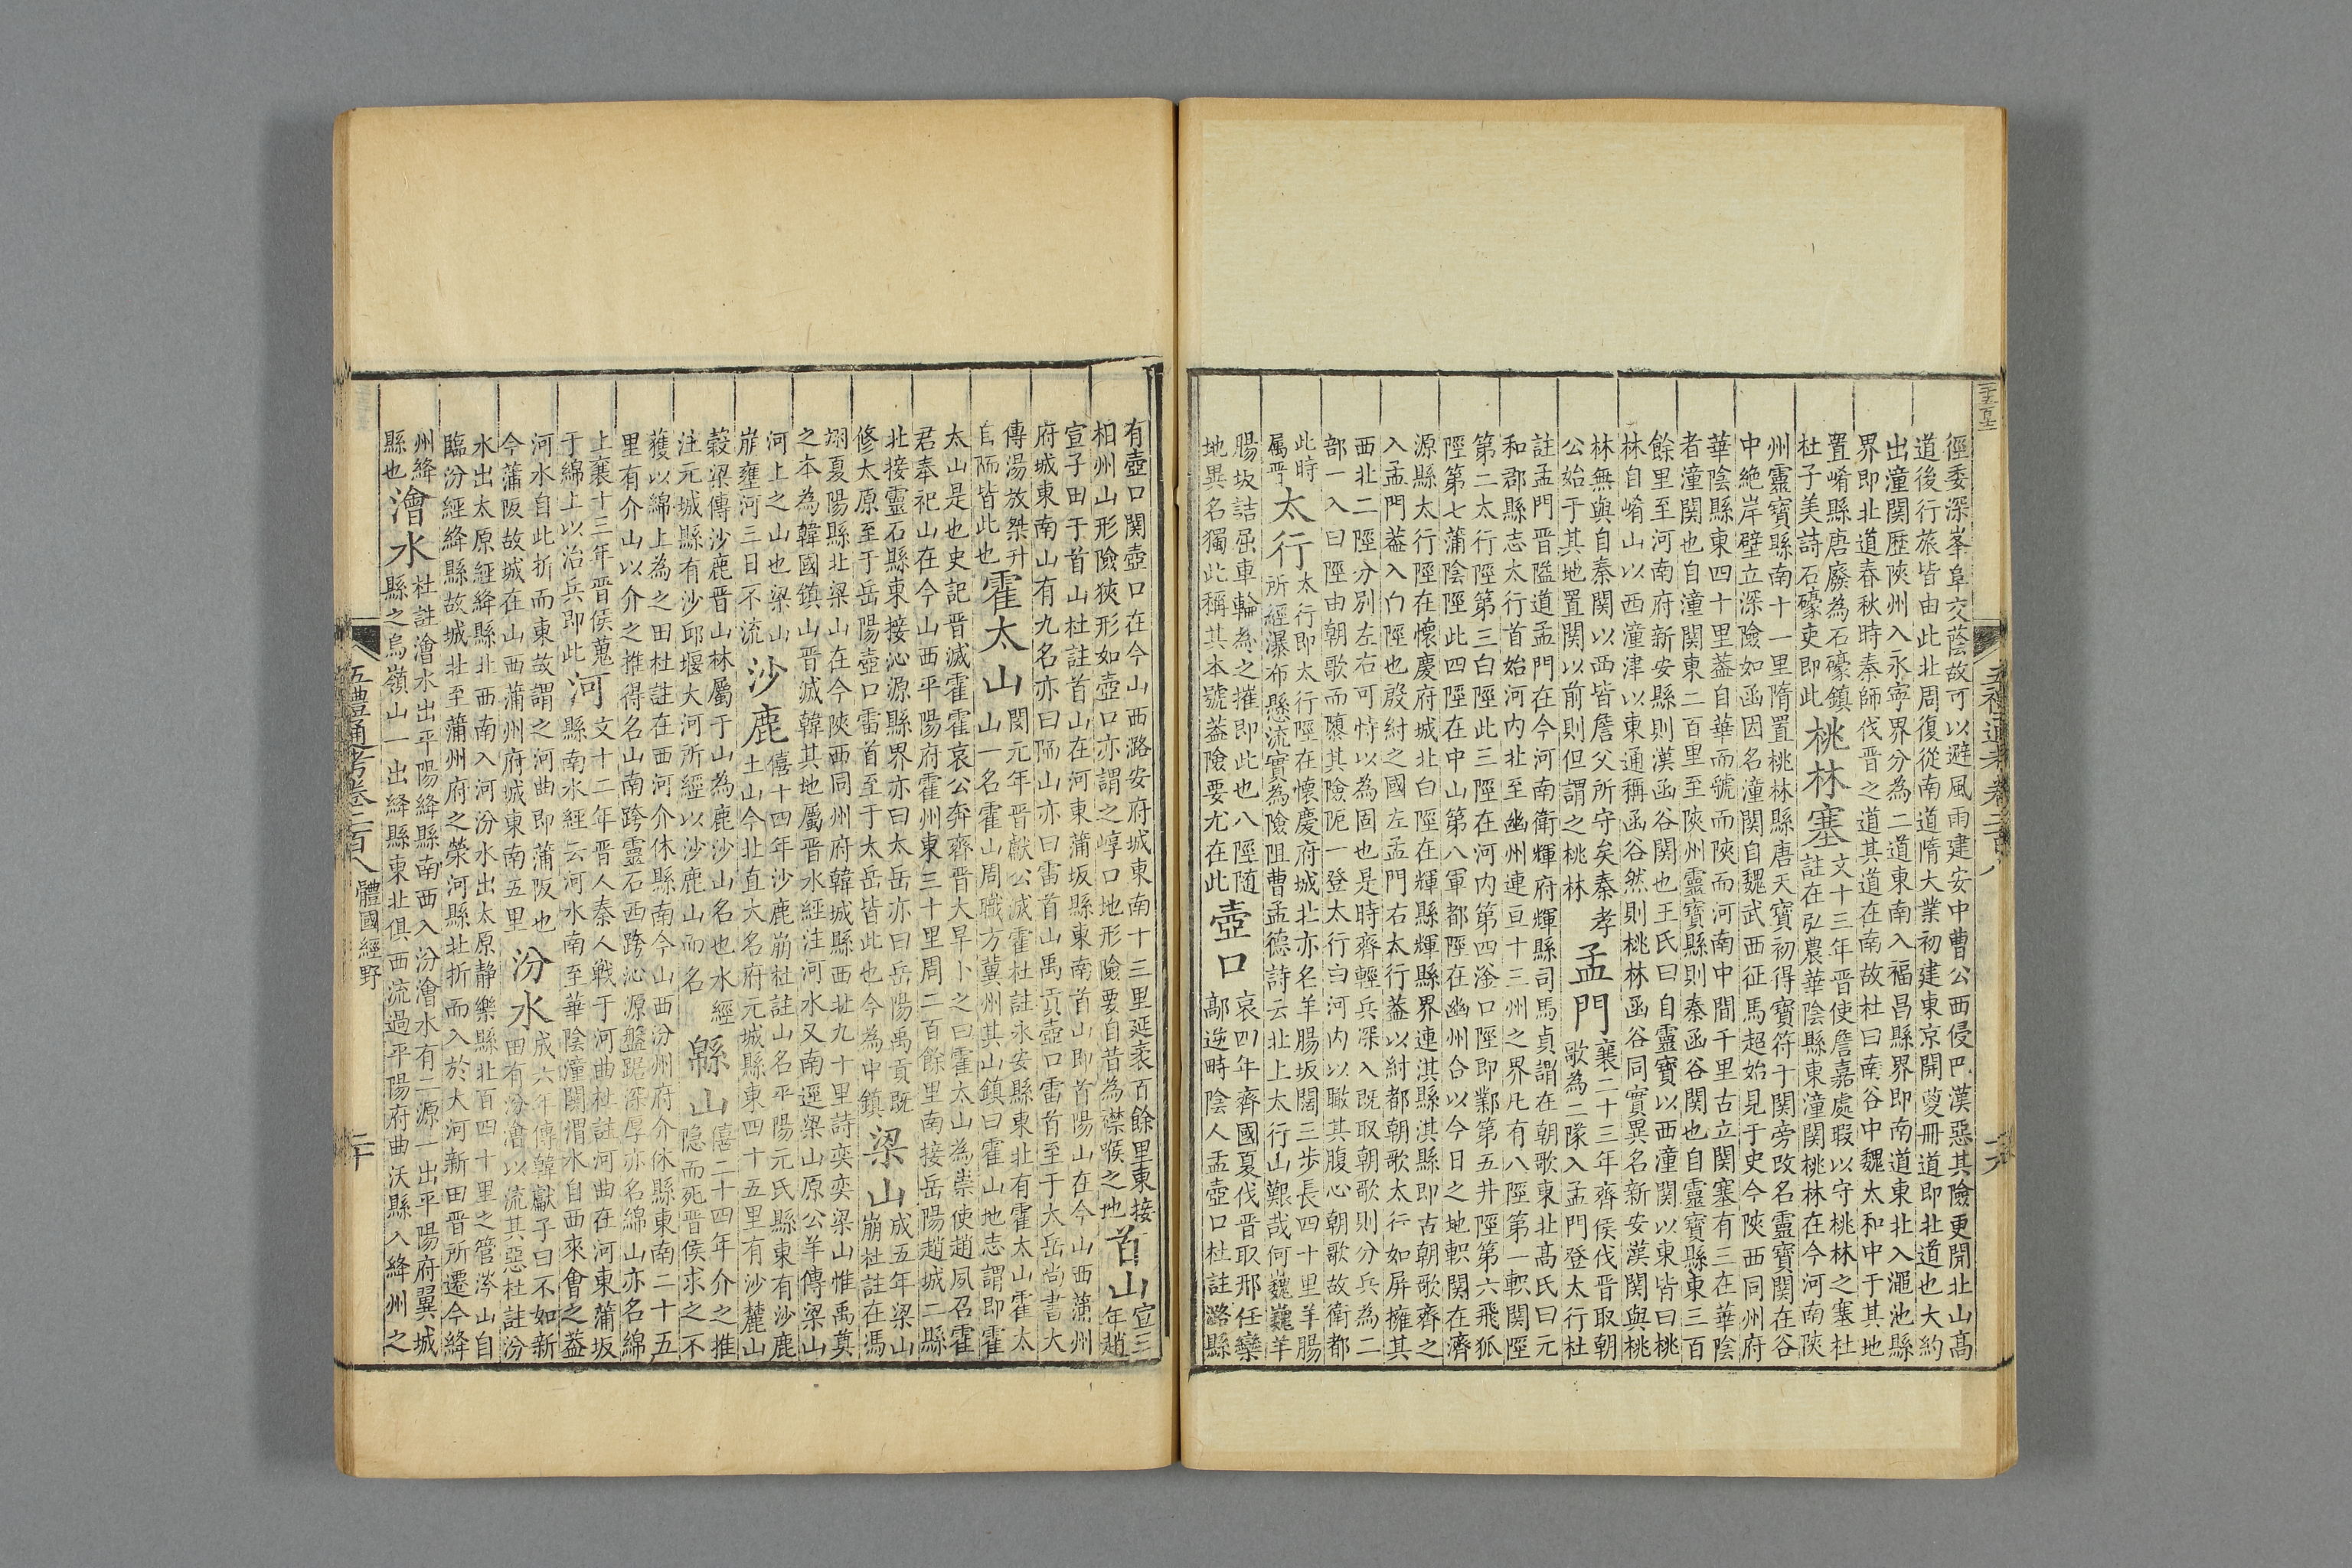 徑委深峯阜交蔭故可以避風雨建安中曹公西侵巴漢惡其險更開北山高
道後行旅皆由此北周復從南道隋大業初建東京開葼冊道即北道也大約
出潼関歷陝州入永寧界分為二道東南入福昌縣界即南道東北入澠池縣
界即北道春秋時秦師伐晉之道其道在南故杜曰南谷中魏太和中于其地
置崤縣唐廢為石礞鎮
杜子美詩石礞吏即此
桃林塞
文十三年晉使詹嘉處瑕以守桃林之塞杜
註在弘農華陰縣東潼関桃林在今河南陝
州靈寶縣南十一里隋置桃林縣唐天寶初得寶符于関旁改名靈寶関在谷
中絶岸壁立深險如函因名潼関自魏武西征馬超始見于史今陝西同州府
華陰縣東四十里葢自華而虢而陝而河南中間千里古立関塞有三在華陰
者潼関也自潼関東二百里至陝州靈寶縣則秦函谷関也自靈寶縣東三百
餘里至河南府新安縣則漢函谷関也王氏曰自靈寶以西潼関以東皆曰桃
林自崤山以西潼津以東通稱函谷然則桃林函谷同實異名新安漢関與桃
林無與自秦関以西皆詹父所守矣秦孝
公始于其地置関以前則但謂之桃林
孟門
襄二十三年齊侯伐晉取朝
歌為二隊入孟門登太行杜
註孟門晉隘道孟門在今河南衛輝府輝縣司馬貞謂在朝歌東北髙氏曰元
和郡縣志太行首始河内北至幽州連亘十三州之界凡有八陘第一軹関陘
第二太行陘第三白陘此三陘在河内第四滏口陘即鄴第五井陘第六飛狐
陘第七蒲陰陘此四陘在中山第八軍都陘在幽州合以今日之地軹関在濟
源縣太行陘在懷慶府城北白陘在輝縣輝縣界連淇縣淇縣即古朝歌齊之
入孟門葢入白陘也殷紂之國左孟門右太行葢以紂都朝歌太行如屏擁其
西北二陘分別左右可恃以為固也是時齊輕兵深入既取朝歌則分兵為二
部一入白陘由朝歌而隳其險阨一登太行自河内以瞰其腹心朝歌故衛都
此時
屬晉
太行
太行即太行陘在懷慶府城北亦名羊腸坂闊三步長四十里羊腸
所經瀑布懸流實為險阻曹孟德詩云北上太行山艱哉何巍巍羊
腸坂詰屈車輪為之摧即此也八陘隨
地異名獨此稱其本號葢險要尤在此
壺口
哀四年齊國夏伐晉取邢任欒
鄗逆畤陰人盂壺口杜註潞縣
有壺口関壺口在今山西潞安府城東南十三里延袤百餘里東接
相州山形險狹形如壺口亦謂之崞口地形險要自昔為襟喉之地
首山
宣三
年趙
宣子田于首山杜註首山在河東蒲坂縣東南首山即首陽山在今山西蒲州
府城東南山有九名亦曰陑山亦曰雷首山禹貢壺口雷首至于太岳尚書大
傳湯放桀升
自陑皆此也
霍太山
閔元年晉獻公滅霍杜註永安縣東北有霍太山霍太
山一名霍山周職方冀州其山鎮曰霍山地志謂即霍
太山是也史記晉滅霍霍哀公奔齊晉大旱卜之曰霍太山為祟使趙夙召霍
君奉祀山在今山西平陽府霍州東三十里周二百餘里南接岳陽趙城二縣
北接靈石縣東接沁源縣界亦曰太岳亦曰岳陽禹貢既
修太原至于岳陽壺口雷首至于太岳皆此也今為中鎮
梁山
成五年梁山
崩杜註在馮
翊夏陽縣北梁山在今陝西同州府韓城縣西北九十里詩奕奕梁山惟禹奠
之本為韓國鎮山晉滅韓其地屬晉水經注河水又南逕梁山原公羊傳梁山
河上之山也梁山
崩壅河三日不流
沙鹿
僖十四年沙鹿崩杜註山名平陽元氏縣東有沙鹿
土山今北直大名府元城縣東四十五里有沙麓山
穀梁傳沙鹿晉山林屬于山為鹿沙山名也水經
注元城縣有沙邱堰大河所經以沙鹿山而名
緜山
僖二十四年介之推
隐而死晉侯求之不
獲以綿上為之田杜註在西河介休縣南今山西汾州府介休縣東南二十五
里有介山以介之推得名山南跨靈石西跨沁源盤踞深厚亦名綿山亦名綿
上襄十三年晉侯蒐
于綿上以治兵即此
河
文十二年晉人秦人戰于河曲杜註河曲在河東蒲坂
縣南水經云河水南至華陰潼関渭水自西來會之葢
河水自此折而東故謂之河曲即蒲阪也
今蒲阪故城在山西蒲州府城東南五里
汾水
成六年傳韓獻子曰不如新
田有汾澮以流其惡杜註汾
水出太原經絳縣北西南入河汾水出太原静樂縣北百四十里之管涔山自
臨汾經絳縣故城北至蒲州府之榮河縣北折而入於大河新田晉所遷今絳
州絳
縣也
澮水
杜註澮水出平陽絳縣南西入汾澮水有二源一出平陽府翼城
縣之烏嶺山一出絳縣東北俱西流過平陽府曲沃縣入絳州之
五禮通考卷二百八
體國經野
二十